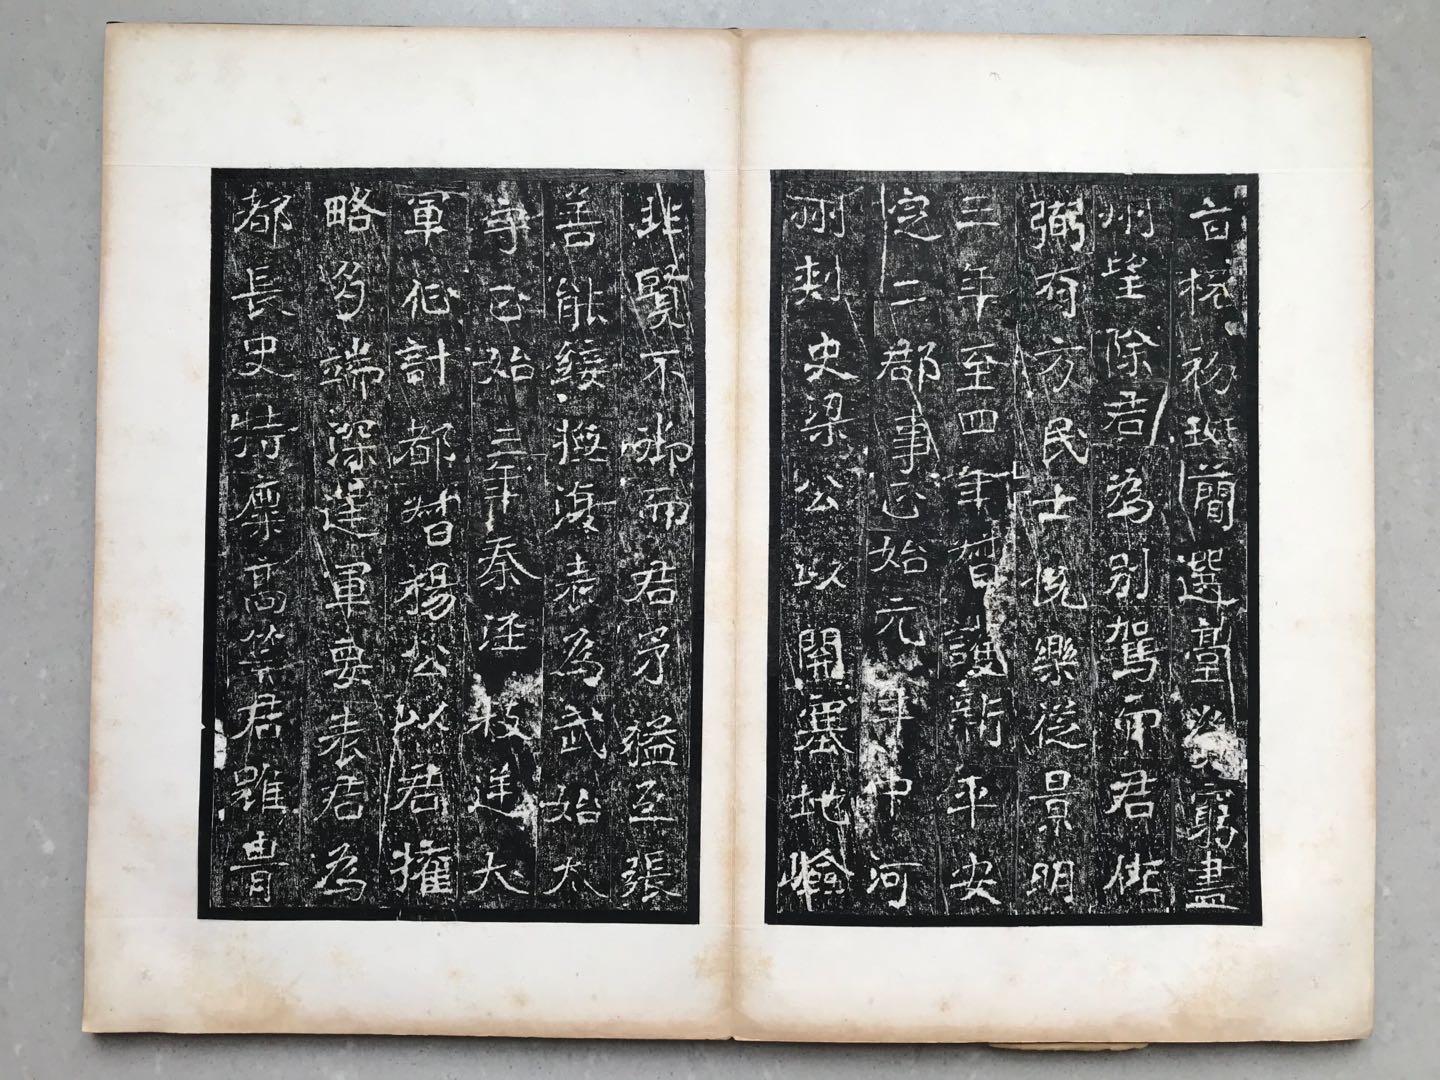 初班簡選臺窮盡
州望除君為別駕而君
弼有方民士悅樂從景明
三年至四年督護新平安
定二郡事正始元年中河
州刺史梁公以開塞地嶮
非賢不御而君矛猛互張
善能綏撫復表為武始太
守正始二年秦涇校逆大
軍伐計都督楊公以君權
略多端深達軍要表君為
都長史特稟高筭君雖曹